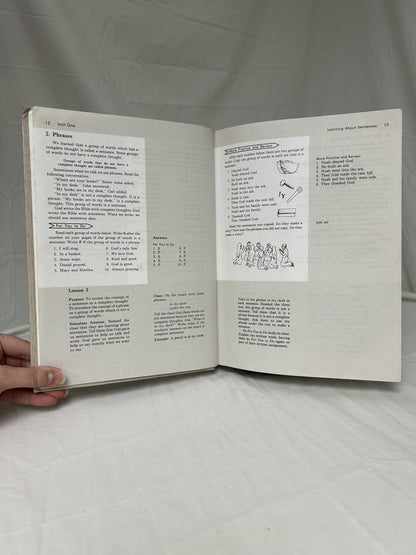 12 Unit One
2. Phrases
We learned that a group of words which has
a complete thought is called a sentence. Some groups
of words do not have a complete thought.
Groups of words that do not have a
complete thought are called phrases.
Sometimes when we talk we use phrases. Read the
following conversation.
"Where are your books?" Sister Anne asked.
"In my desk," John answered.
"My books are in my desk," Carl added.
"In my desk" is not a complete thought. It is a
phrase. "My books are in my desk" is a complete
thought. This group of words is a sentence.
God wrote the Bible with complete thoughts. God
wrote the Bible with sentences. When we write, we
should use sentences also.
For You to Do
Read each group of words below. Write it after the
number on your paper if the group of words is a
sentence. Write P if the group of words is a phrase.
1. I will sing.
2. In a basket.
3. Jesus wept.
4. Daniel prayed.
5. Mary and Martha.
6. God's only Son.
7. We love God.
8. Kind and good.
9. God is good.
10. Always praying.
Answers:
For You to Do
Lesson 2
Purpose: To review the concept of
a sentence as a complete thought.
To introduce the concept of a phrase
as a group of words which is not a
complete thought.
Stimulate Interest: Remind the
class that they are learning about
sentences. Tell them that God uses
sentences to help us talk and
write. God gave us sentences to
help us say exactly what we want
to say.
Class: On the board write these
phrases.
in my desk
under the tree
Tell the class that these are not
sentences because they are not
complete thoughts. Ask, "What is
in my desk?" Write some of the
students' answers on the board in
complete sentences.
Example: A pencil is in my desk.
Learning About Sentences 13
More Practice and Review
After each number below there are two groups of
words. Copy the group of words in each set that is a
sentence.
1. Noah obeyed God.
Obeyed God.
2. He built an ark.
Built an ark.
3. Noah went into the ark.
Noah in the ark.
4. Made it rain.
Then God made the rain fall.
5. Noah and his family were safe.
Noah and his family.
6. Thanked God.
They thanked God.
Read the sentences you copied. Do they make a
story? Now read the phrases you did not copy. Do they
make a story?
More Practice and Review
1. Noah obeyed God.
2. He built an ark.
3. Noah went into the ark.
4. Then God made the rain fall.
5. Noah and his family were safe.
6. They thanked God.
Point to the phrase in my desk in
each sentence. Tell the class that
this group of words is not a
sentence. Tell them that it is a
phrase because it is not a complete
thought. Ask them to use the
phrase under the tree to make a
sentence.
Do For You to Do in class.
Explain the written work, having
them do For You to Do again as
part of their written assignment.